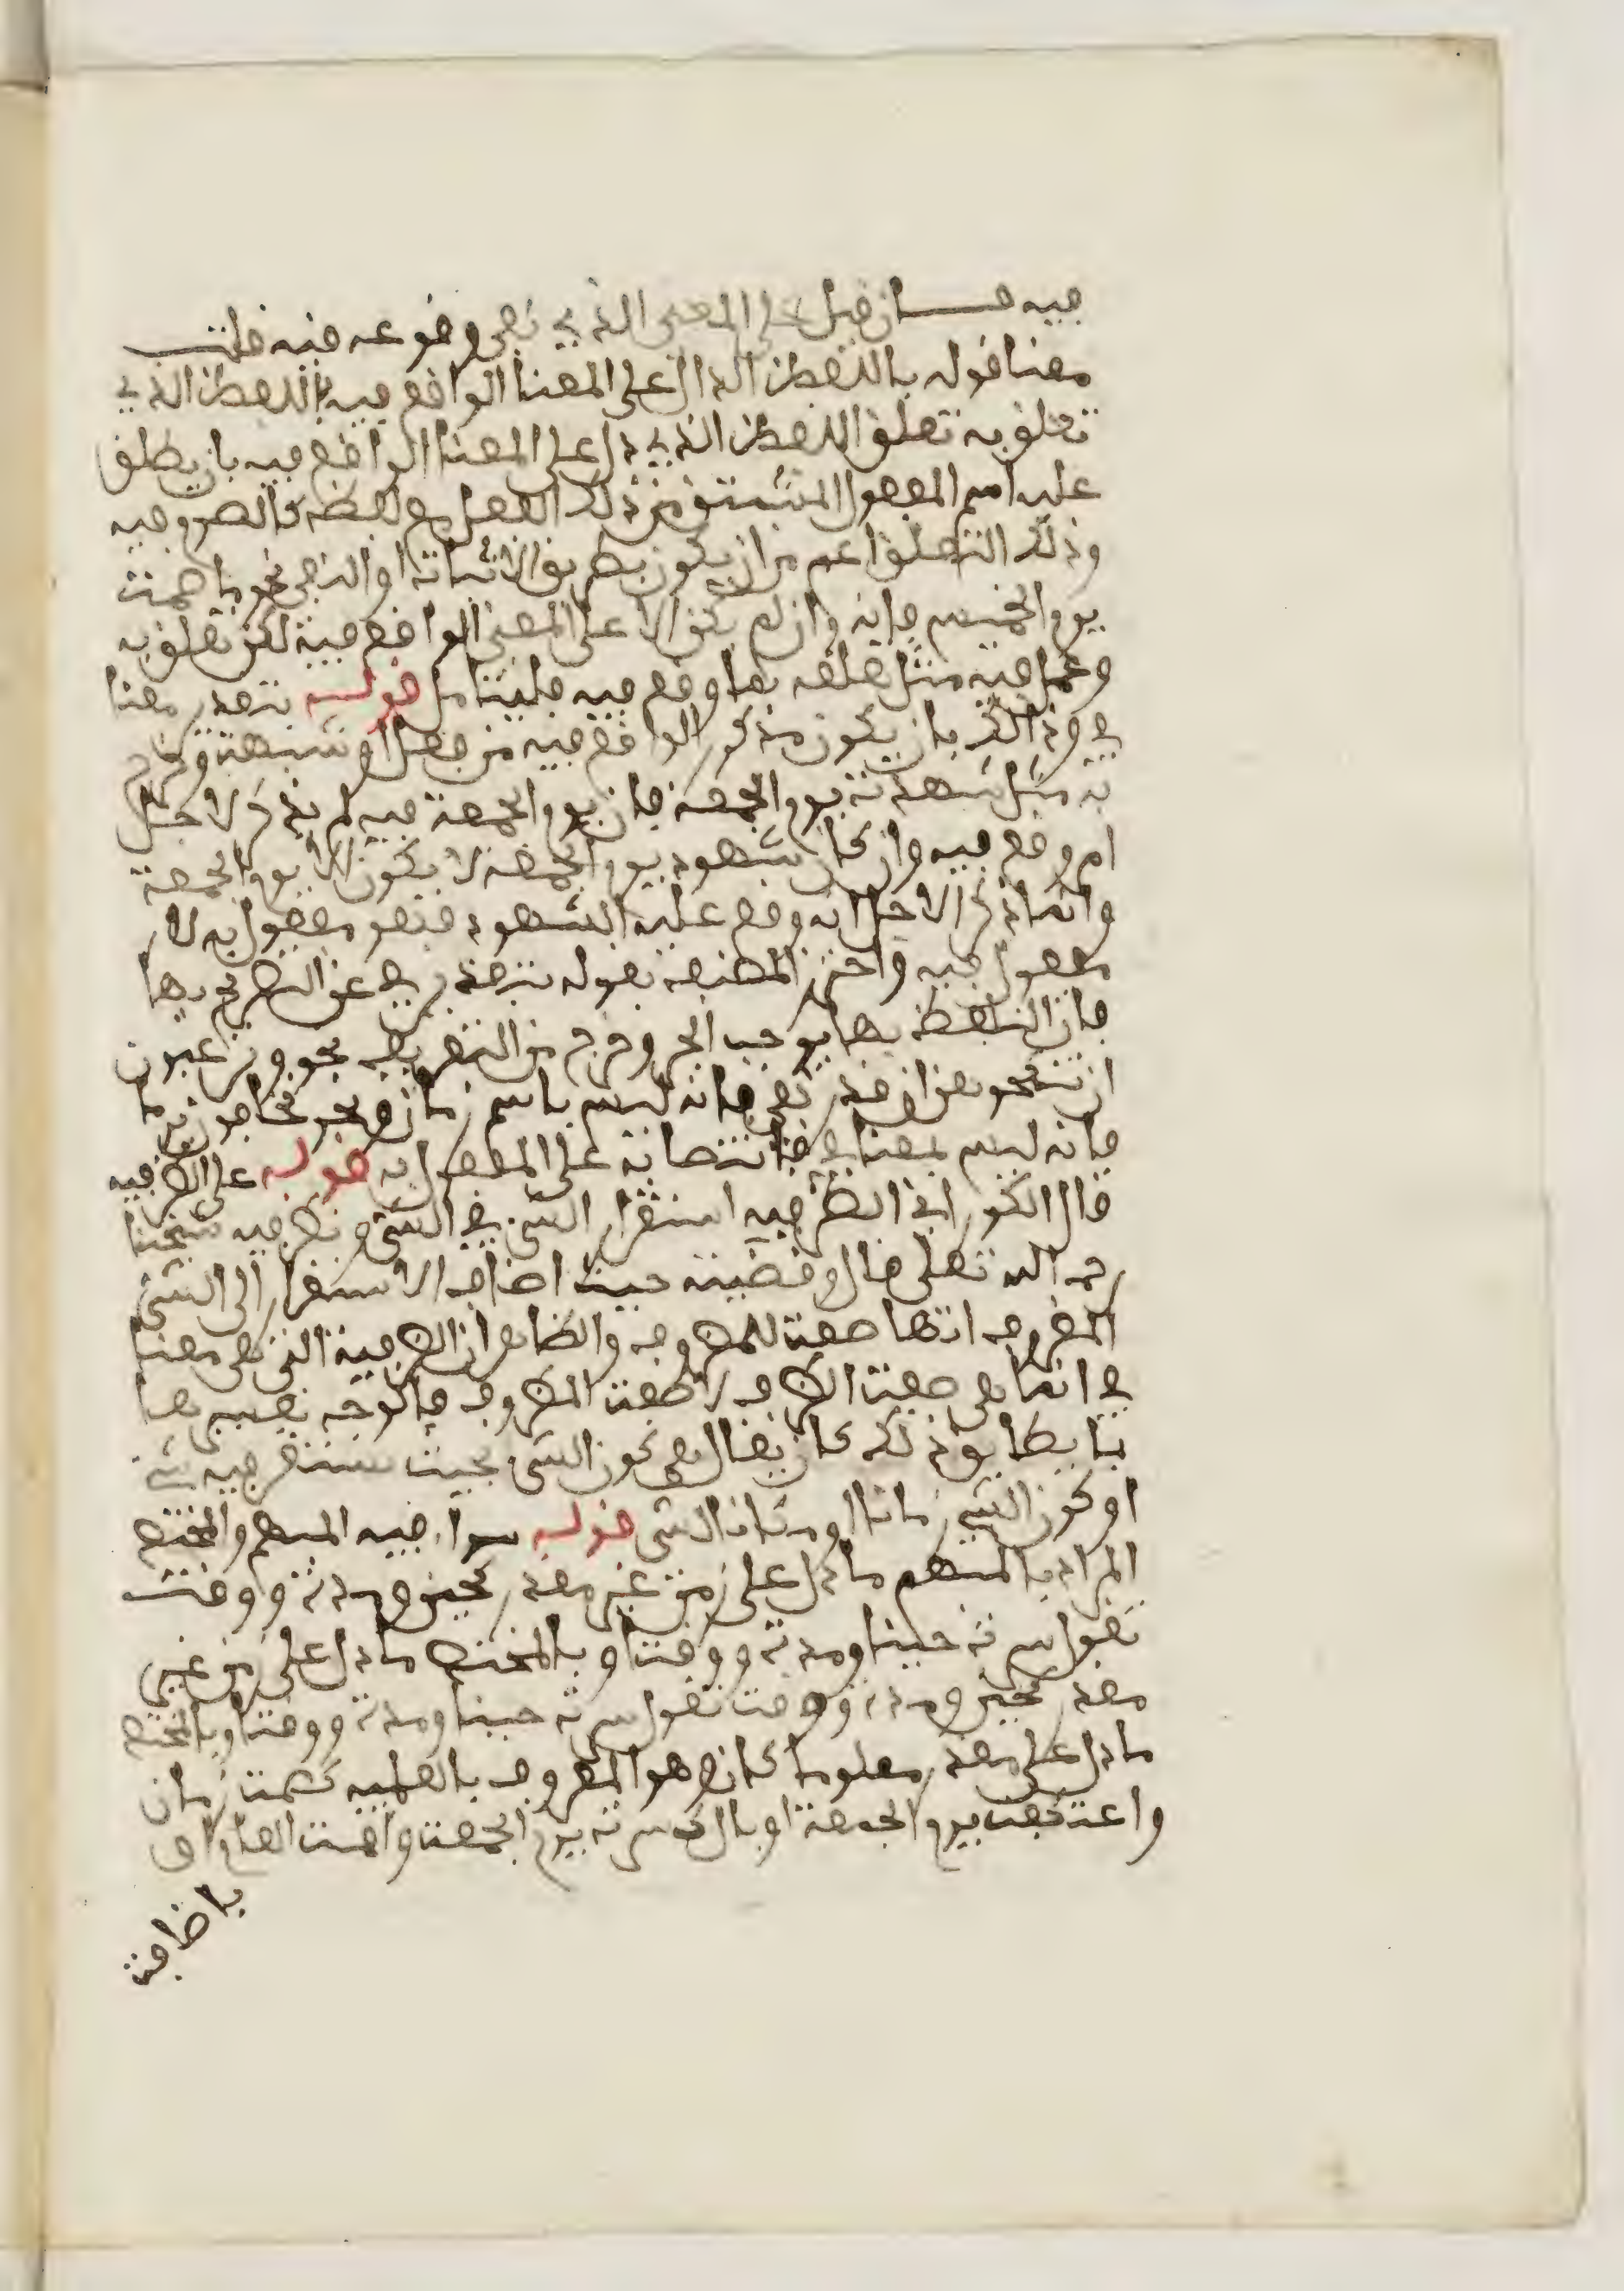 فيه فان قيل على المعنى الذي نفى وقوعه فيه قلت
معنا قوله باللفظ الدال على المعنا الواقع فيه باللفظ الذي
تعلق به تعلق اللفظ الذي دل على المعنا الواقع فيه بان يطلق
عليه اسم المفعول المشتق من ذلك الفعل مع لفظه كالصوم فيه
وذلك التعلق اعم من ان يكون بطريق الاثبات او النفي نحو ما صمت
يوم الخميس فانه وان لم يكن الا على المعنى الواقع فيه لكن تعلق به
وعمل فيه مثل تعلقه بما وقع فيه فليتامل قوله بتقدير معنا
في وذالك بان يكون مذكور الواقع فيه من فعل او شبهه
به مثل شهدت يوم الجمعة فان يوم الجمعة فيه لم يذكر لاجل
امر وقع فيه وان كان شهود يوم الجمعة لا يكون الا يوم الجمعة
وانما ذكر لاجل انه وقع عليه الشهود فهو مفعول به لا
مفعول فيه واحترز المصنف بقوله بتقدير في عن التصريح بها
فان التلفظ بها يوجب الجر وخرج من التعريف نحو وترغبون
ان تنكحوهن ان قدر بفي فانه ليس باسم زمان ونحو يخافون يوما
فانه ليس بمعنا في فانتصابه على المفعول به قوله على الظرفيه
قال الكوراني الظرفيه استقرار الشيء في الشيء ونظر فيه شيخنا
رحمه الله تعلى قال وقضيته حيث اضاف الاستقرار الى الشيء
المظروف انها صفت للمظروف والظاهر ان الظرفية التي هي معنا
في انما هي صفت الظرف لا صفت المظروف فالوجه تفسيرها
بما يطابق ذلك كان يقال هي كون الشيء بحيث يستقر فيه شيء
او كون الشيء زمانا او مكانا لشيء قوله سواء فيه المبهم والمختص
المراد بالمبهم ما دل على زمن غير مقدر كحين ومدة ووقت
تقول سرت حينا ومدة ووقتا وبالمختص ما دل على زمن غير
مقدر كحين ومدة ووقت تقول سرت حينا ومدة ووقتا وبالمختص
ما دل على مقدر معلوما كان وهو المعروف بالعلميه كصمت رمضان
واعتكفت يوم الجمعة او بال كسرت يوم الجمعت واقمت العام او
باضافت